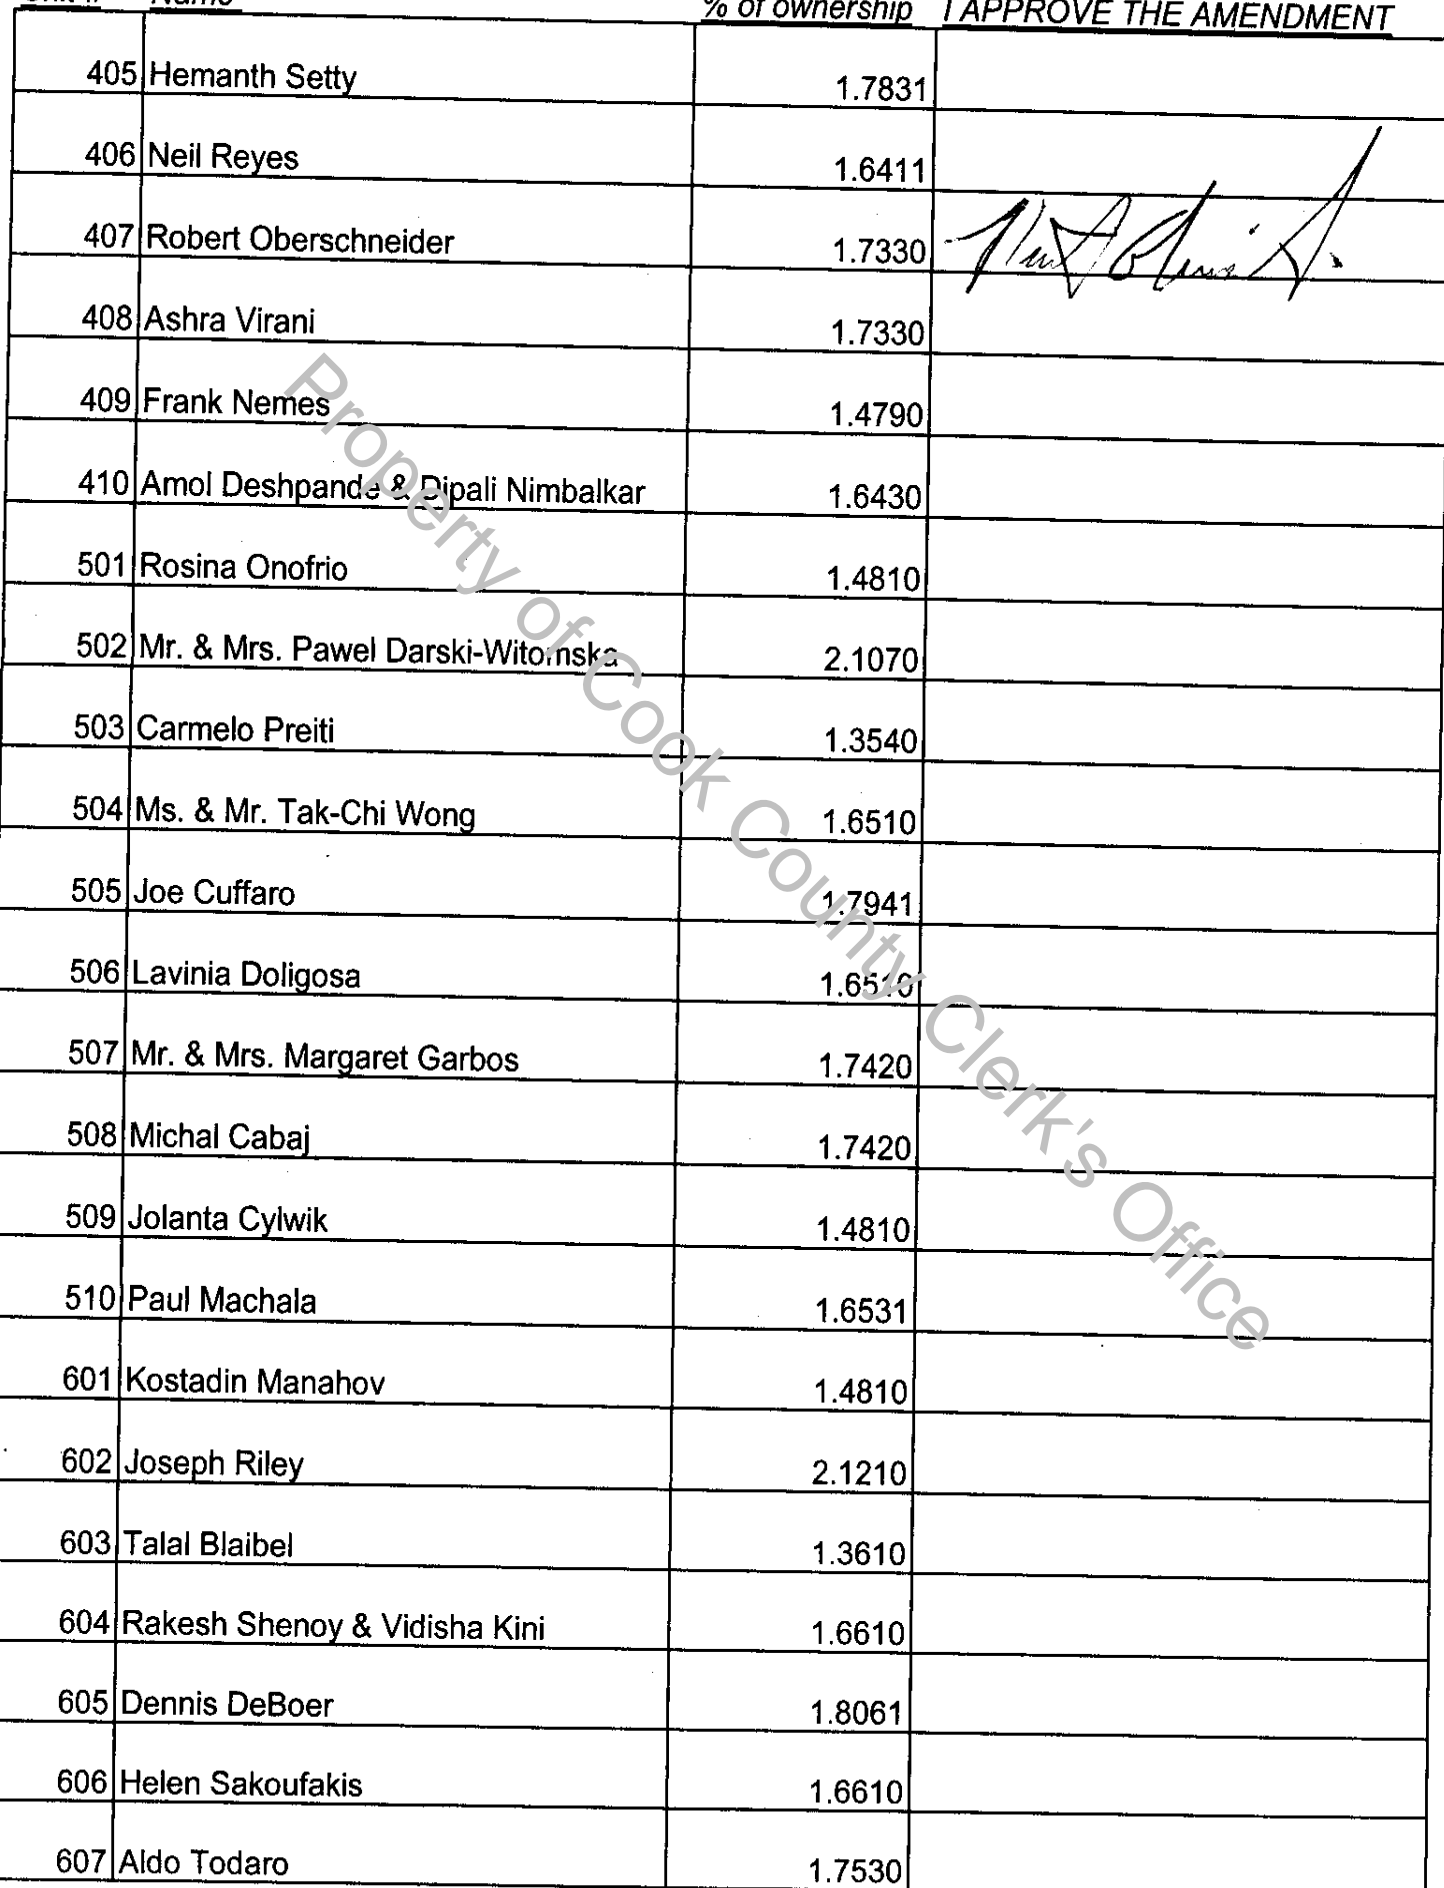 Name % of ownership I APPROVE THE AMENDMENT
405 Hemanth Setty 1.7831
406 Neil Reyes 1.6411
407 Robert Oberschneider 1.7330
408 Ashra Virani 1.7330
409 Frank Nemes 1.4790
410 Amol Deshpande & Dipali Nimbalkar 1.6430
501 Rosina Onofrio 1.4810
502 Mr. & Mrs. Pawel Darski-Witomska 2.1070
503 Carmelo Preiti 1.3540
504 Ms. & Mr. Tak-Chi Wong 1.6510
505 Joe Cuffaro 1.7941
506 Lavinia Doligosa 1.6510
507 Mr. & Mrs. Margaret Garbos 1.7420
508 Michal Cabaj 1.7420
509 Jolanta Cylwik 1.4810
510 Paul Machala 1.6531
601 Kostadin Manahov 1.4810
602 Joseph Riley 2.1210
603 Talal Blaibel 1.3610
604 Rakesh Shenoy & Vidisha Kini 1.6610
605 Dennis DeBoer 1.8061
606 Helen Sakoufakis 1.6610
607 Aldo Todaro 1.7530
Property of Cook County Clerk's Office